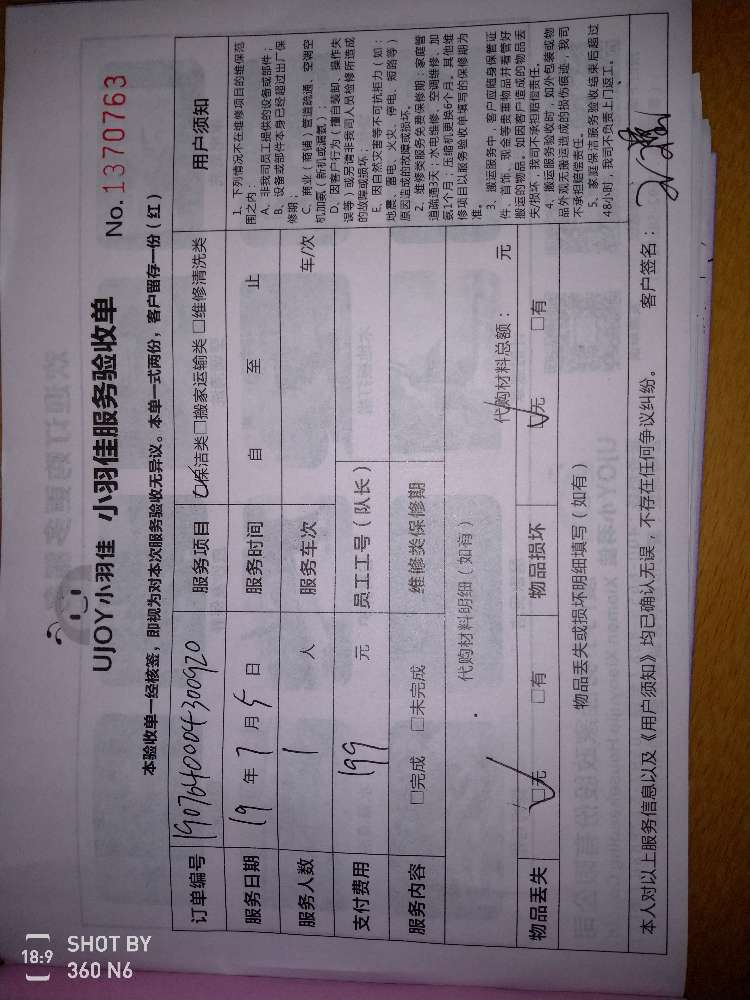 UJOY小羽佳 小羽佳服务验收单
No. 1370763
本验收单一经核签，即视为对本次服务验收无异议。本单一式两份，客户留存一份（红）
订单编号
服务项目 保洁类 □搬家运输类 □维修清洗类
服务日期 19 年 7 月 5 日
服务时间 自 至 止
服务人数 1 人
服务车次 车/次
支付费用 199 元
员工工号（队长）
服务内容 □完成 □未完成
维修类保修期
代购材料明细（如有）
代购材料总额： 元
物品丢失 □无 □有
物品损坏 □无 □有
物品丢失或损坏明细填写（如有）
用户须知
1、下列情况不在维修项目的维保范
围之内：
A、非我司员工提供的设备或部件；
B、设备或部件本身已经超过出厂保
修期；
C、商业（商铺）管道疏通、空调空
机加氨（新机或漏氨）；
D、因客户行为（擅自装卸、操作失
误等）或另请非我司人员检修所造成
的故障或损坏。
E、因自然灾害等不可抗拒力（如：
地震、雷电、火灾、停电、短路等）
原因造成的故障或损坏。
2、维修类服务免费保修期：家庭管
道疏通3天；水电维修、空调维修、加
氨1个月；压缩机更换6个月。其他维
修项目以服务验收单填写的保修期为
准。
3、搬运服务中，客户应随身保管证
件、首饰、现金等贵重物品并看管好
搬运的物品。如因客户造成的物品丢
失/损坏，我司不承担赔偿责任。
4、搬运服务验收时，如外包装或物
品外观无搬运造成的损伤痕迹，我司
不承担赔偿责任。
5、家庭保洁服务验收结束后超过
48小时，我司不负责上门返工。
本人对以上服务信息以及《用户须知》均已确认无误，不存在任何争议纠纷。 客户签名：
18:9 SHOT BY
360 N6